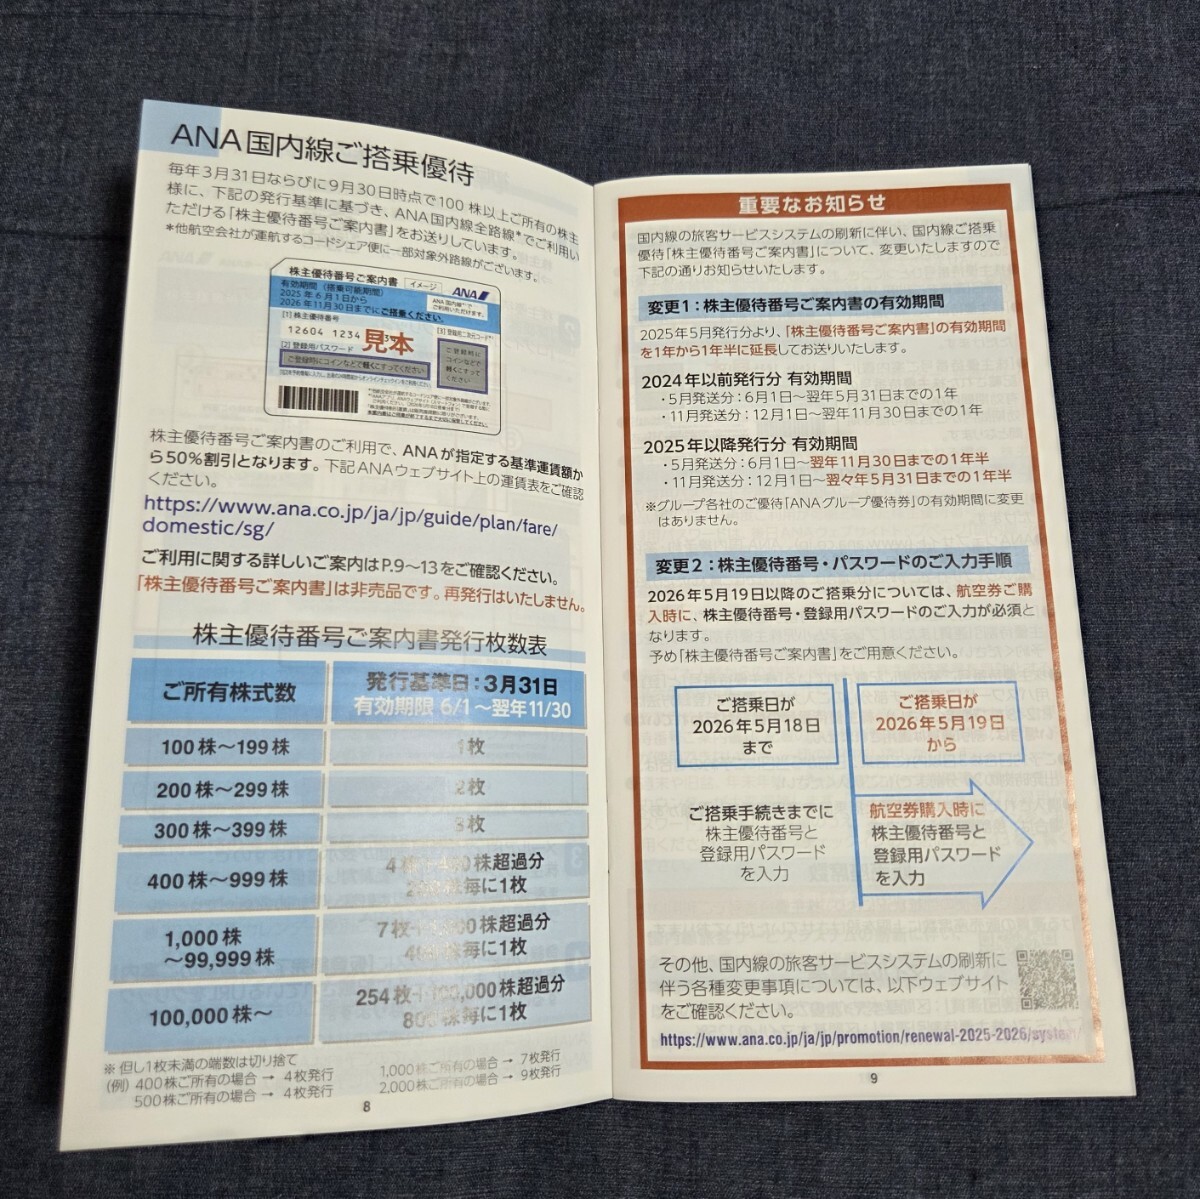 ANA国内線ご搭乗優待
毎年3月31日ならびに9月30日時点で100株以上ご所有の株主
様に、下記の発行基準に基づき、ANA国内線全路線*でご利用い
ただける「株主優待番号ご案内書」をお送りしています。
*他航空会社が運航するコードシェア便に一部対象外路線がございます。
株主優待番号ご案内書 イメージ ANA
有効期間（搭乗可能期間）
2025年6月1日から
2026年11月30日までにご搭乗ください。
ANA国内線*で
ご利用いただけます。
[1]株主優待番号
12604 1234
見本
[2]登録用パスワード
ご登録時にコインなどで軽くこすってください
ご登録時に
コインなどで
軽くこすって
ください
株主優待番号ご案内書のご利用で、ANAが指定する基準運賃額か
ら50%割引となります。下記ANAウェブサイト上の運賃表をご確認
ください。
https://www.ana.co.jp/ja/jp/guide/plan/fare/
domestic/sg/
ご利用に関する詳しいご案内はP.9～13をご確認ください。
「株主優待番号ご案内書」は非売品です。再発行はいたしません。
株主優待番号ご案内書発行枚数表
ご所有株式数
発行基準日：3月31日
有効期限 6/1～翌年11/30
100株～199株 1枚
200株～299株 2枚
300株～399株 3枚
400株～999株
4枚+400株超過分
200株毎に1枚
1,000株
～99,999株
7枚+1,000株超過分
400株毎に1枚
100,000株～
254枚+100,000株超過分
800株毎に1枚
※但し1枚未満の端数は切り捨て
(例) 400株ご所有の場合 → 4枚発行 1,000株ご所有の場合 → 7枚発行
500株ご所有の場合 → 4枚発行 2,000株ご所有の場合 → 9枚発行
8
重要なお知らせ
国内線の旅客サービスシステムの刷新に伴い、国内線ご搭乗
優待「株主優待番号ご案内書」について、変更いたしますので
下記の通りお知らせいたします。
変更1：株主優待番号ご案内書の有効期間
2025年5月発行分より、「株主優待番号ご案内書」の有効期間
を1年から1年半に延長してお送りいたします。
2024年以前発行分 有効期間
・5月発送分：6月1日～翌年5月31日までの1年
・11月発送分：12月1日～翌年11月30日までの1年
2025年以降発行分 有効期間
・5月発送分：6月1日～翌年11月30日までの1年半
・11月発送分：12月1日～翌々年5月31日までの1年半
※グループ各社のご優待「ANAグループ優待券」の有効期間に変更
はありません。
変更2：株主優待番号・パスワードのご入力手順
2026年5月19日以降のご搭乗分については、航空券ご購
入時に、株主優待番号・登録用パスワードのご入力が必須と
なります。
予め「株主優待番号ご案内書」をご用意ください。
ご搭乗日が
2026年5月18日
まで
ご搭乗日が
2026年5月19日
から
ご搭乗手続きまでに
株主優待番号と
登録用パスワード
を入力
航空券購入時に
株主優待番号と
登録用パスワード
を入力
その他、国内線の旅客サービスシステムの刷新に
伴う各種変更事項については、以下ウェブサイト
をご確認ください。
https://www.ana.co.jp/ja/jp/promotion/renewal-2025-2026/system/
9